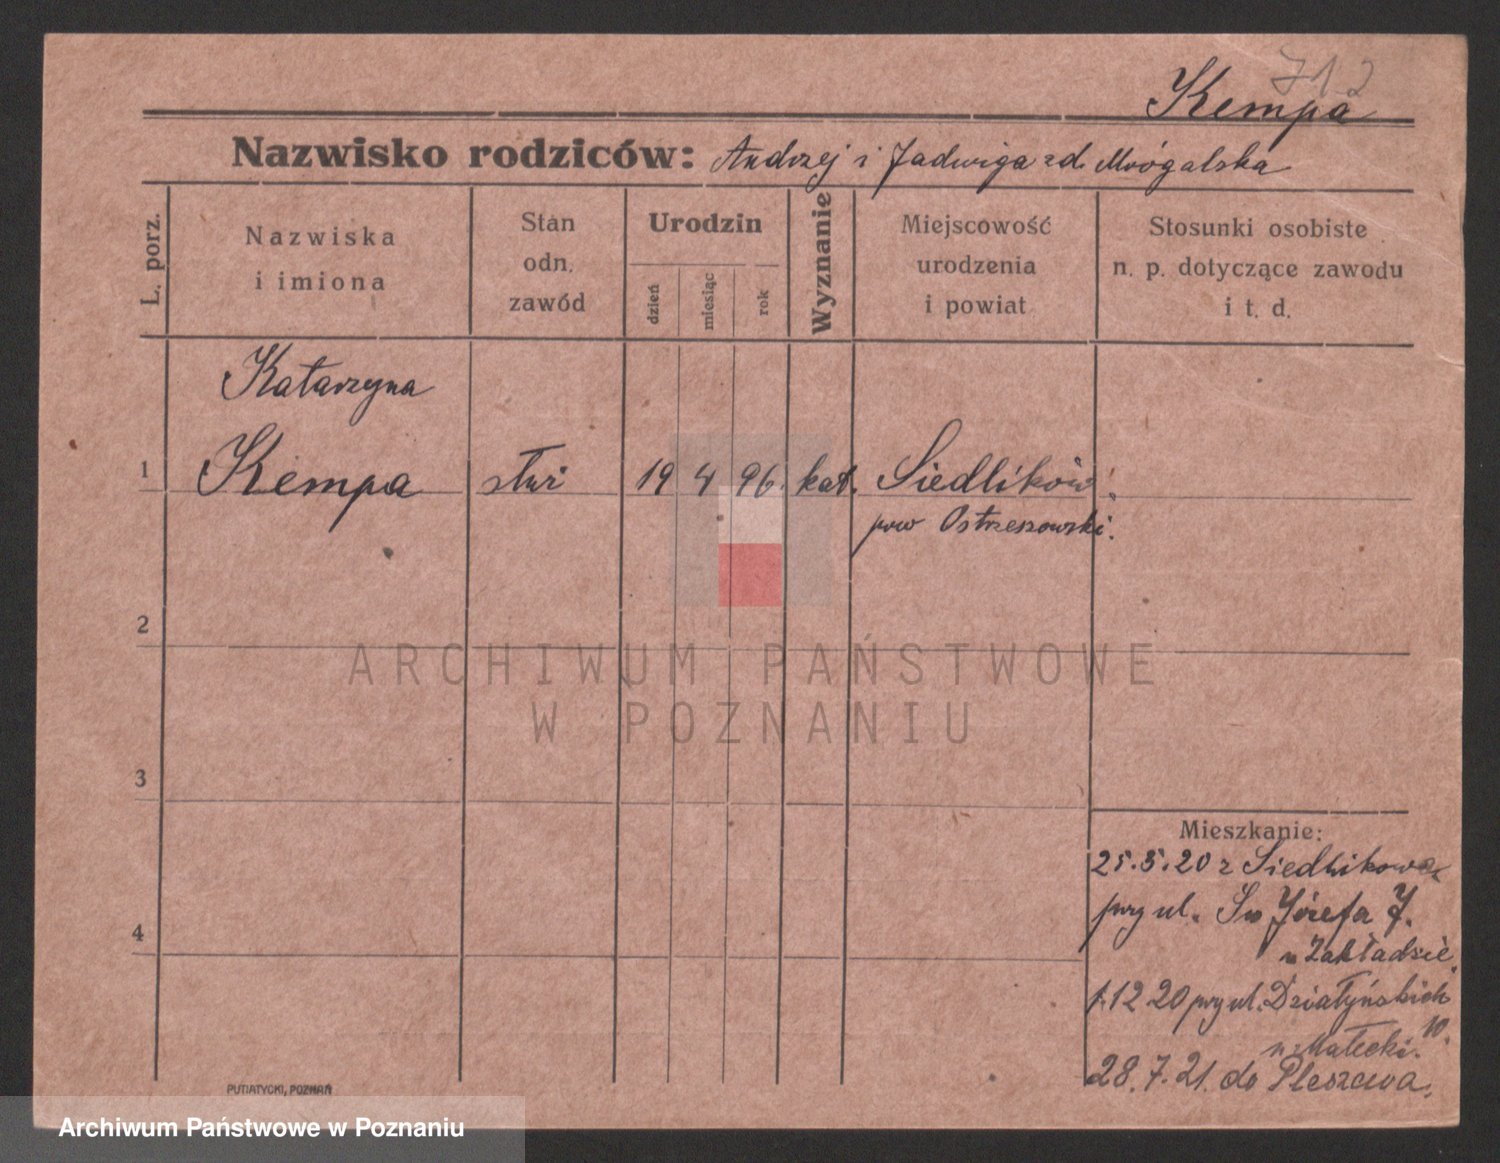 712
Kempa
Nazwisko rodziców: Andrzej i Jadwiga zd. Mrógalska
L. porz.
Nazwiska
i imiona
Stan
odn.
zawód
Urodzin
dzień
miesiąc
rok
Wyznanie
Miejscowość
urodzenia
i powiat
Stosunki osobiste
n. p. dotyczące zawodu
i t. d.
Katarzyna
1 Kempa służ 19 4 96. kat. Siedlików
pow Ostrzeszowski.
2
ARCHIWUM PAŃSTWOWE
W POZNANIU
3
Mieszkanie:
25.5.20 z Siedlikowa
przy ul. Św Józefa 7.
w Zakładzie
4
1.12 20 przy ul. Działyńskich
10.
u Małecki.
28.7.21. do Pleszewa.
PUTIATYCKI, POZNAŃ
Archiwum Państwowe w Poznaniu